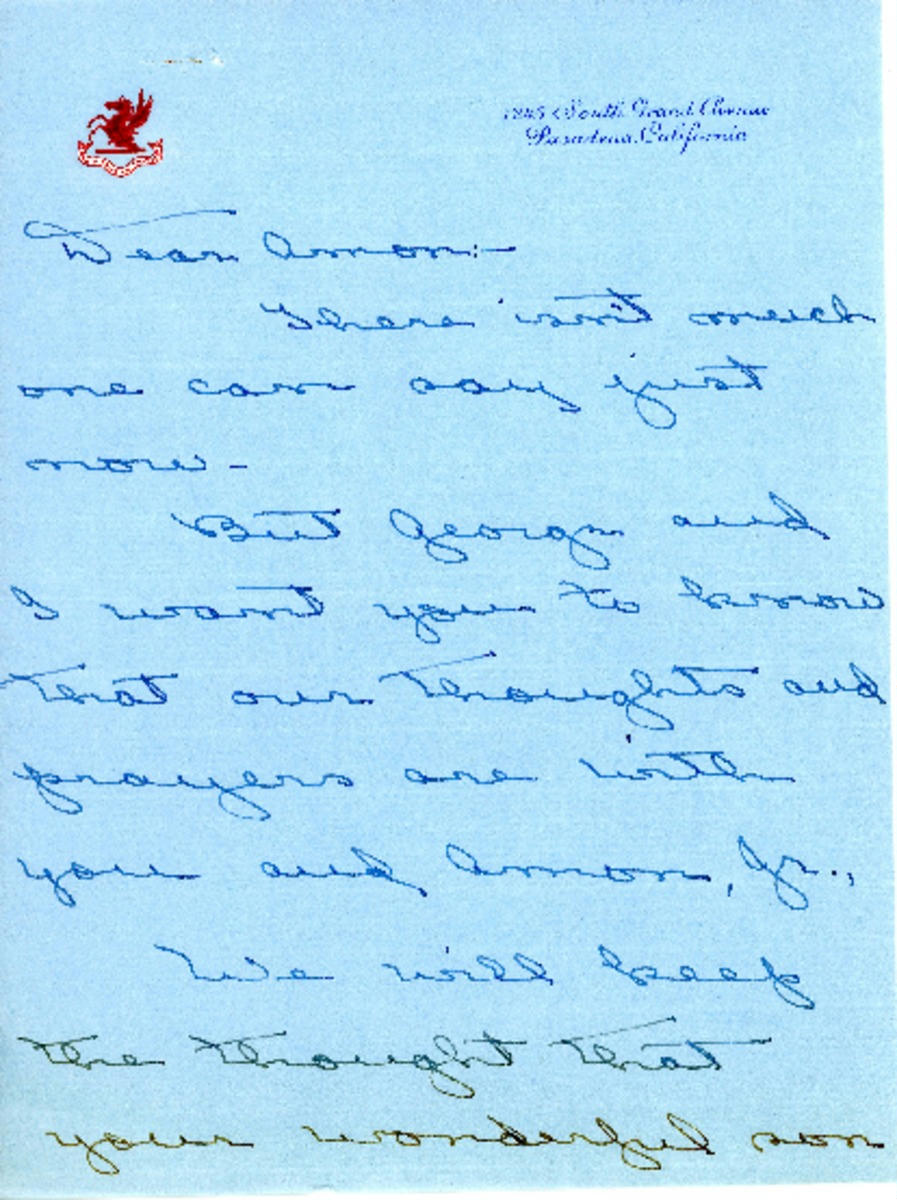 South Grand Avenue
Pasadena, California
Dear Amon:-
There isn't much
one can say just
now -
But George and
I want you to know
that our thoughts and
prayers are with
you and Amon, Jr.,
We will keep
the thought that
your wonderful son